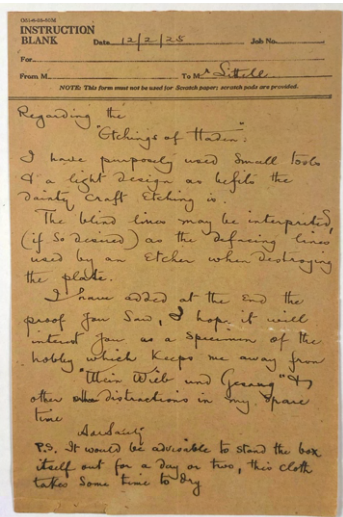 INSTRUCTION
BLANK
Date 12/2/25 Job No.
For
From M To Mr Littell
NOTE: This form must not be used for Scratch paper; scratch pads are provided.
Regarding the
"Etchings of Haden".
I have purposely used small tools
& a light design as befits the
dainty craft Etching is.
The blind lines may be interpreted,
(if so desired) as the defacing lines
used by an Etcher when destroying
the plate.
I have added at the End the
proof you saw, I hope it will
interest you as a specimen of the
hobby which keeps me away from
"Wein Wieb und Gesang" &
other distractions in my spare
time
P.S. It would be advisable to stand the box
itself out for a day or two, this cloth
takes some time to dry